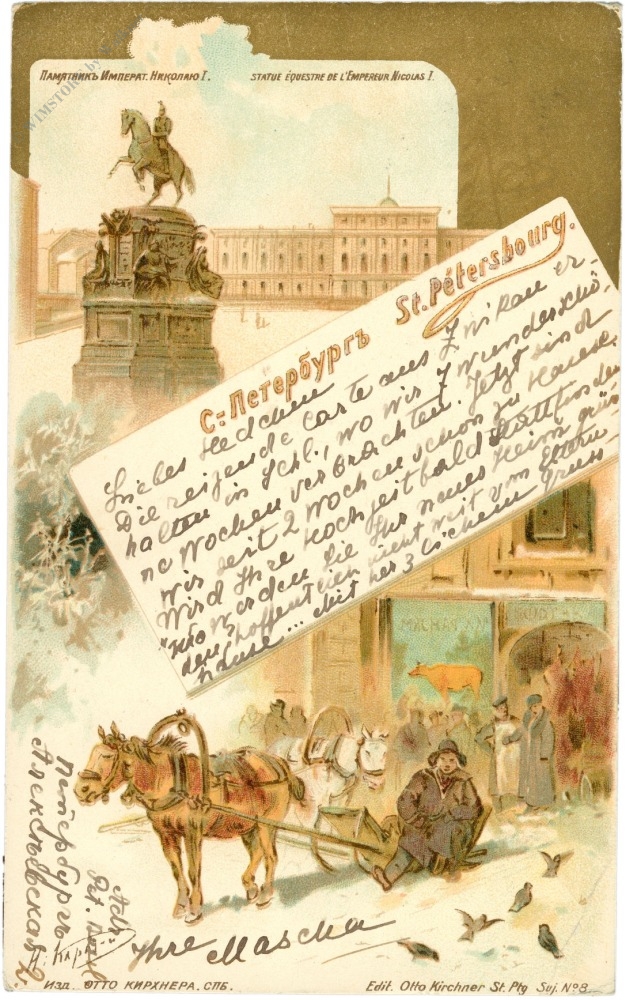 Памятникъ Императ. Николаю I.
Statue équestre de l'Empereur Nicolas I.
С=Петербургъ St. Pétersbourg.
Liebes Hedchen
Die reizende Carte aus Zwikau er-
halten in Schl., wo wir 7 wunderschö-
ne Wochen verbrachten. Jetzt sind
wir seit 2 Wochen schon zu Hause.
Wird Ihre Hochzeit bald stattfinden
Wo werden Sie Ihr neues Heim grün-
den? hoffentlich nicht weit vom Eltern
hause... Mit herzlichem Gruss
Ihre Mascha
МЯСНАЯ
Петербургъ
Алексѣевская 2.
Adr.
Изд. Отто Кирхнера. СПБ.
Edit. Otto Kirchner St. Ptg Suj. No 8.
WIMSTORY by